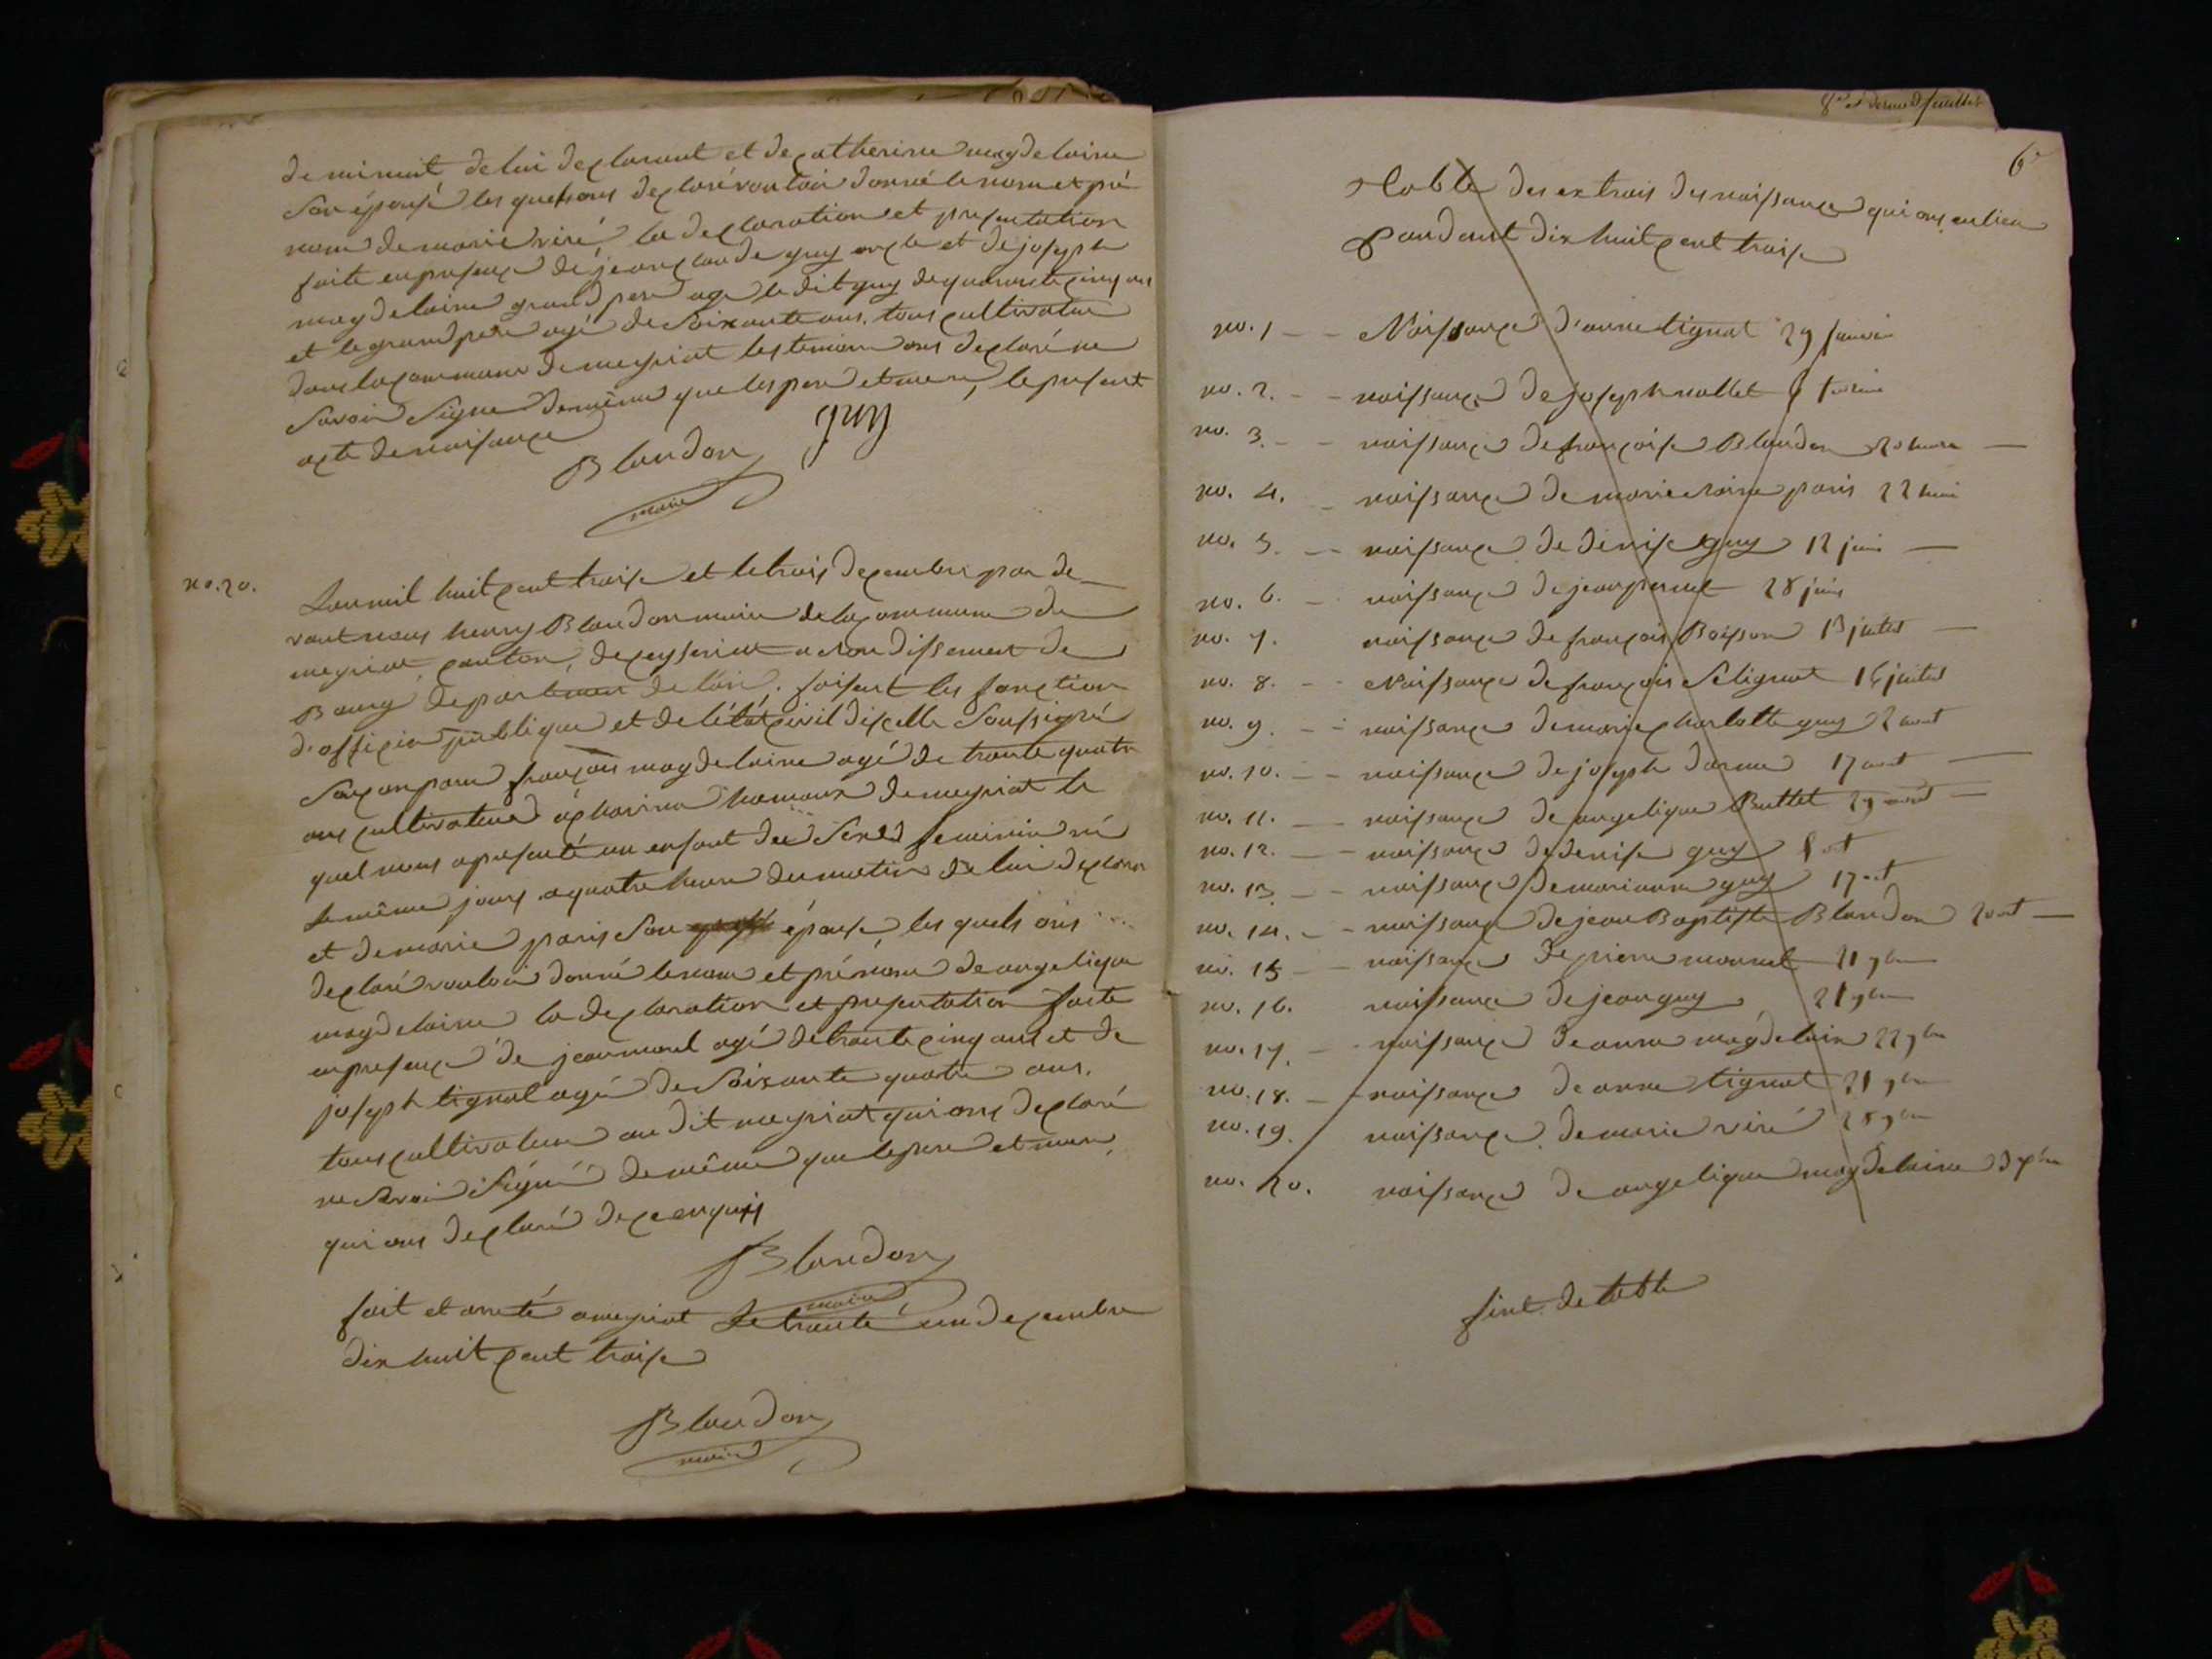 de minuit de lui declarant et de catherine magdelaine
son épouse les quels ons declaré vouloir donné le nom et pré
nom de marie viré, la declaration et presentation
faite en presence de jean claude guy oncle et de joseph
magdelaine grand pere age le dit guy de quarante cinq ans
et le grand pere agé de soixante ans. tous cultivateur
dans la commune de meyriat les temoin ons declaré ne
savoir signe de même que les pere et mere, le present
acte de naissance
guy
Blandon
maire
no. 20.
L'an mil huit cent troise et le trois decembre par de
vant nous henry Blandon maire de la commune de
meyriat, canton, de ceyseriat arrondissement de
Bourg departement de l'ain. faisant les fonction
d'officier publique et de l'état civil dicelle soussigné
francois magdelaine agé de trante quatre
ans cultivateur a hameaux de meyriat le
quel nous a presenté un enfant du sexe feminin né
le même jour a quatre heure du matin de lui declarant
et de marie paris son épouse, les quels ons
declaré vouloir donné le nom et prénom de angelique
magdelaine la declaration et presentation faite
en presence de jean morel agé de trante cinq ans et de
joseph tignat agé de soixante quatre ans.
tous cultivateur au dit meyriat qui ons declaré
ne savoir signé de même que le pere et mere,
qui ons declaré de ce enquis
Blandon
maire
fait et arreté a meyriat le trante un decembre
dix huit cent troise
Blandon
maire
8e et dernier feuillet
6e
Table des extrais des naissance qui ons eu lieu
pandant dix huit cent troise
no. 1 - - Naissance d'anne tignat 29 janvier
no. 2. - - naissance de joseph nallet 6
no. 3. - - naissance de françoise Blandon 20
no. 4. - naissance de marie paris 22
no. 5. - - naissance de denise guy 12 juin -
no. 6. - naissance de jean pernet 28 juin
no. 7. naissance de françois Boisson 13 juilet -
no. 8. - - Naissance de françois Selignat 16 juilet
no. 9. - - naissance de marie charlotte guy 2 aout
no. 10. - - naissance de joseph darme 17 aout -
no. 11. - - naissance de angelique Buttet 29 aout -
no. 12. - - naissance de denise guy
no. 13. - - naissance de marianne guy 17
no. 14. - - naissance de jean Baptiste Blandon 20 -
no. 15 - - naissance de pierre 21 9bre
no. 16. naissance de jean guy 21 9bre
no. 17. - - naissance de anne magdelain 22 9bre
no. 18. - - naissance de anne tignat 21 9bre
no. 19. naissance de marie viré 28 9bre
no. 20. naissance de angelique magdelaine 3 xbre
fint de table